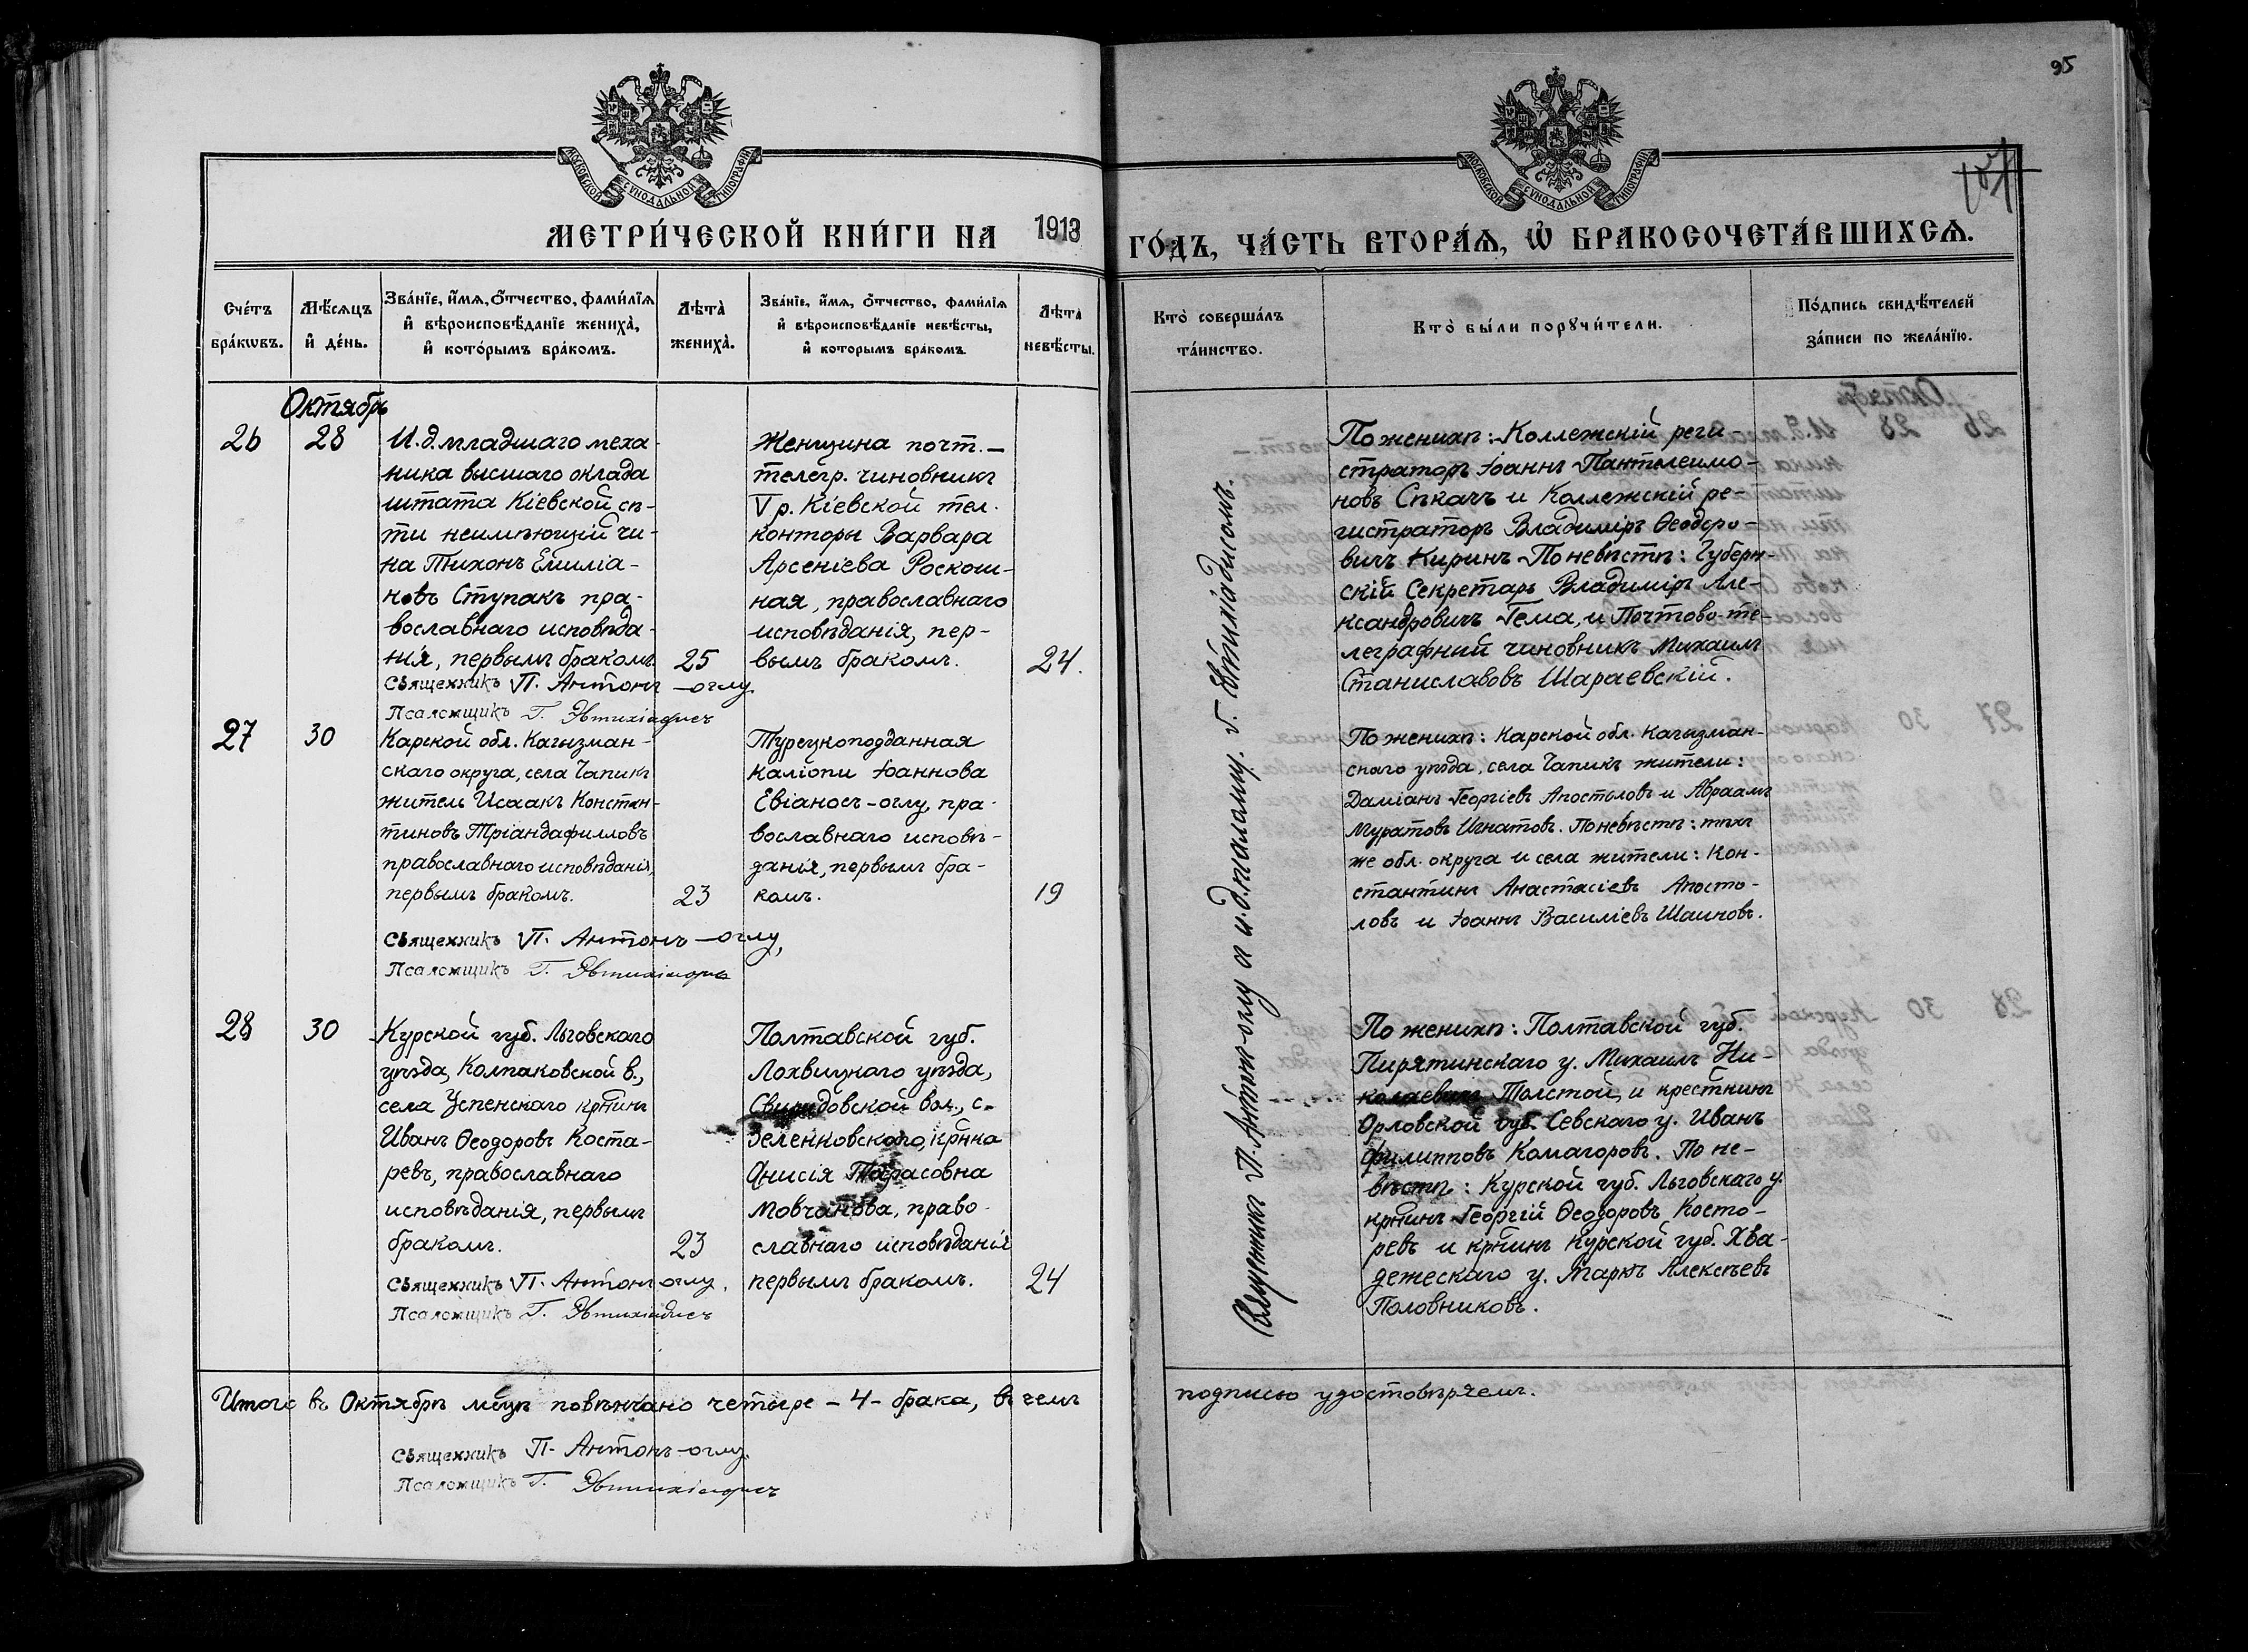 95
107
МОСКОВСКОЙ СѴНОДАЛЬНОЙ ТИПОГРАФІИ
МОСКОВСКОЙ СѴНОДАЛЬНОЙ ТИПОГРАФІИ
МЕТРИ́ЧЕСКОЙ КНИ́ГИ НА 1913 ГО́ДЪ, ЧА́СТЬ ВТОРА́Ѧ, Ѡ БРАКОСОЧЕТА́ВШИХСѦ.
Сче́тъ
бра́кѡвъ.
Мѣ́сѧцъ
и҆ де́нь.
Зва́нїе, и҆́мѧ, ѻ҆́тчество, фами́лїѧ
и҆ вѣроисповѣ́данїе жениха̀,
и҆ кото́рымъ бра́комъ.
Лѣта̀
жениха̀.
Зва́нїе, и҆́мѧ, ѻ҆́тчество, фами́лїѧ
и҆ вѣроисповѣ́данїе невѣ́сты,
и҆ которымъ бракомъ.
Лѣта̀
невѣ́сты.
Кто̀ соверша́лъ
та́инство.
Кто̀ бы́ли порꙋчи́тели.
По́дпись свидѣ́телей
за́писи по жела́нїю.
Октябрь
26
28
И. д. младшаго меха-
ника высшаго оклада
штата Кіевской сѣ-
ти неимѣющій чи-
на Тихонъ Емиліа-
новъ Ступакъ пра-
вославнаго исповѣда-
нія, первымъ бракомъ.
25
Женщина почт.-
телегр. чиновникъ
V р. Кіевской тел.
конторы Варвара
Арсеніева Роскош-
ная, православнаго
исповѣданія, пер-
вымъ бракомъ.
24.
Священникъ П. Антонъ-оглу.
Псаломщикъ Г. Эвтихіадисъ
По женихѣ: Коллежскій реги-
страторъ Іоаннъ Пантелеимо-
новъ Сѣкачъ и Коллежскій ре-
гистраторъ Владиміръ Ѳеодоро-
вичъ Киринъ. По невѣстѣ: Губерн-
скій Секретарь Владиміръ Але-
ксандровичъ Гема, и Почтово-те-
леграфный чиновникъ Михаилъ
Станиславовъ Шараевскій.
27
30
Карской обл. Кагызман-
скаго округа, села Чапикъ
житель Исаакъ Констан-
тиновъ Тріандафилловъ
православнаго исповѣданія,
первымъ бракомъ.
23
Турецкоподданная
Каліопи Іоаннова
Евіаносъ-оглу, пра-
вославнаго исповѣ-
данія, первымъ бра-
комъ.
19
Священникъ П. Антонъ-оглу,
Псаломщикъ Г. Эвтихіадисъ
По женихѣ: Карской обл. Кагызман-
скаго уѣзда, села Чапикъ жители:
Даміанъ Георгіевъ Апостоловъ и Авраамъ
Муратовъ Игнатовъ. По невѣстѣ: тѣхъ
же обл. округа и села жители: Кон-
стантинъ Анастасіевъ Апосто-
ловъ и Іоаннъ Василіевъ Шаиновъ.
28
30
Курской губ. Льговскаго
уѣзда, Колпаковской в.,
села Успенскаго кртинъ
Иванъ Ѳеодоровъ Коста-
ревъ, православнаго
исповѣданія, первымъ
бракомъ.
23
Полтавской губ.
Лохвицкаго уѣзда,
Свиридовской вол., с.
Зеленковскаго, крнка
Анисія Тарасовна
Мовчанова, право-
славнаго исповѣданія
первымъ бракомъ.
24
Священникъ П. Антонъ-оглу.
Псаломщикъ Г. Эвтихіадисъ
По женихѣ: Полтавской губ.
Пирятинскаго у. Михаилъ Ни-
колаевичъ Толстой, и крестнинъ
Орловской губ. Севскаго у. Иванъ
Филипповъ Комагоровъ. По не-
вѣстѣ: Курской губ. Льговскаго у.
кртинъ Георгій Ѳеодоровъ Косто-
ревъ и кртинъ Курской губ.
у. Маркъ Алексѣевъ
Половниковъ.
Священникъ П. Антонъ-оглу и и. д. псаломщ. Г. Евтихіадисъ.
Итого въ Октябрѣ мѣцѣ повѣнчано четыре - 4 - брака, въ чемъ подписью удостовѣряемъ.
Священникъ П. Антонъ-оглу.
Псаломщикъ Г. Эвтихіадисъ